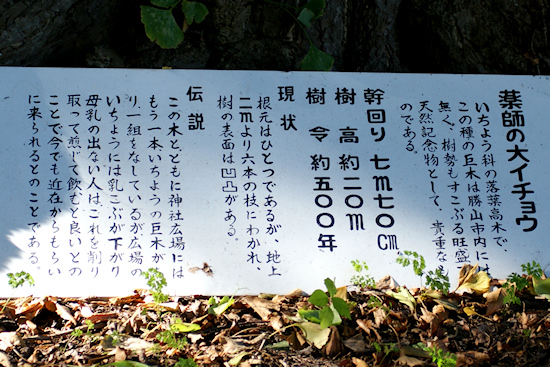 薬師の大イチョウ
いちょう科の落葉高木で、
この種の巨木は勝山市内には
無く、樹勢もすこぶる旺盛
天然記念物として、貴重な
のである。
幹回り 七m七〇cm
樹高 約二〇m
樹令 約五〇〇年
現状
根元はひとつであるが、地上
二mより六本の枝にわかれ、
樹の表面は凹凸がある。
伝説
この木とともに神社広場には
もう一本いちょうの巨木が
り一組をなしているが広場の
いちょうには乳こぶが下がり
母乳の出ない人は、これを削り
取って煎じて飲むと良いとの
ことで今でも近在からもらい
に来られるとのことである。